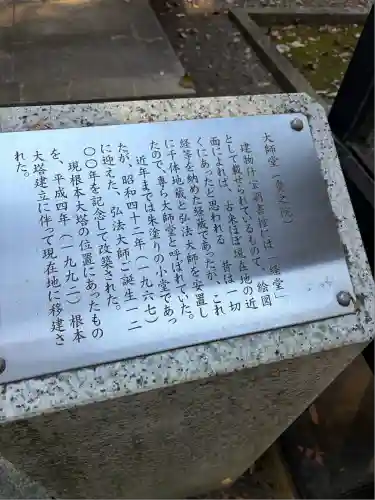 大師堂（奥之院）
建物什宝明細書には「一経堂」
として載せられているもので、絵図
面によれば、古来ほぼ現在地の近
くにあったと思われる。昔は一切
経等を納めた経蔵であったが、これ
に千体地蔵と弘法大師を安置し
たので、専ら大師堂と呼ばれていた。
近年までは朱塗りの小堂であっ
たが、昭和四十二年（一九六七）
に迎えた、弘法大師ご誕生一二
〇〇年を記念して改築された。
現根本大塔の位置にあったもの
を、平成四年（一九九二）根本
大塔建立に伴って現在地に移建さ
れた。